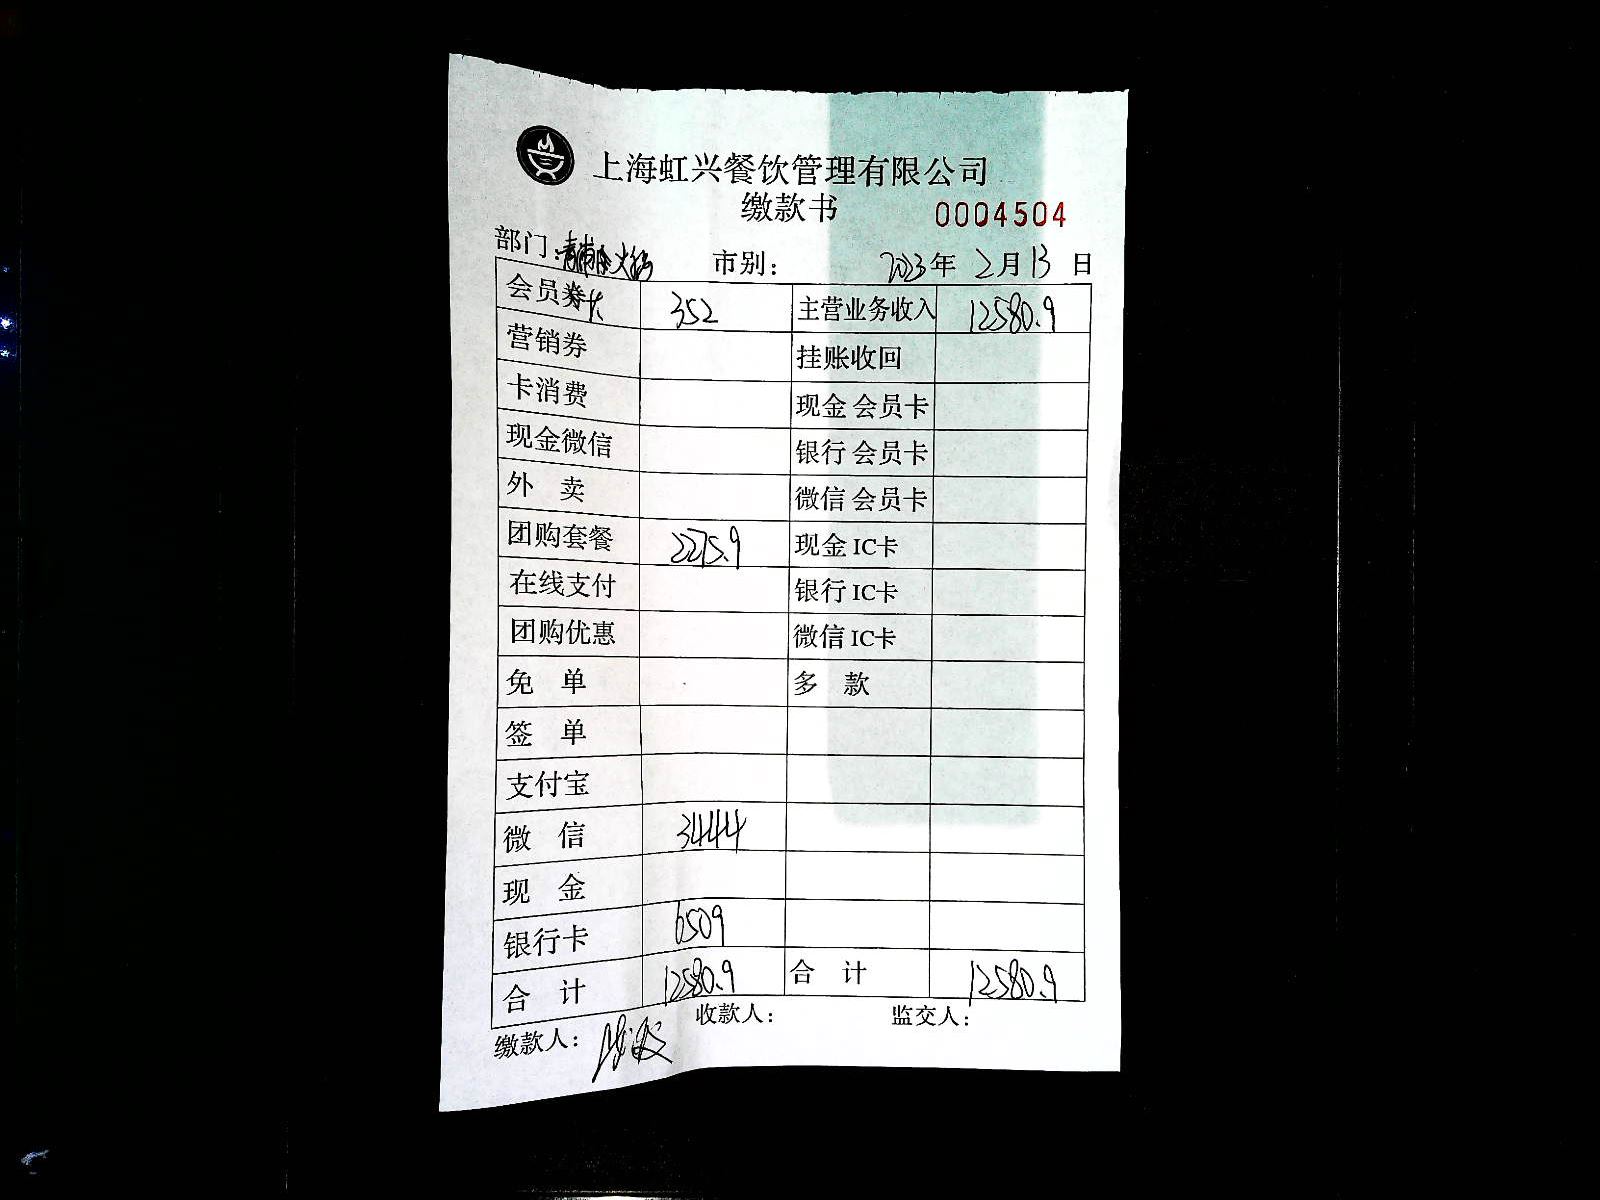 上海虹兴餐饮管理有限公司
缴款书 0004504
部门: 火锅 市别: 2023年 2月 13 日
会员卡 352 主营业务收入 12580.9
营销券 挂账收回
卡消费 现金 会员卡
现金微信 银行 会员卡
外 卖 微信 会员卡
团购套餐 2275.9 现金 IC卡
在线支付 银行 IC卡
团购优惠 微信 IC卡
免 单 多 款
签 单
支付宝
微 信 3444
现 金
银行卡 6509
合 计 12580.9 合 计 12580.9
缴款人: 收款人: 监交人: